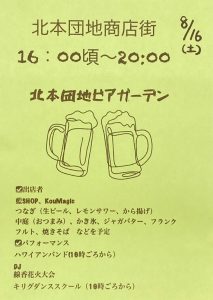 北本団地商店街
8/16
(土)
16：00頃～20:00
北本団地ビアガーデン
☑出店者
☑SHOP、KouMagic
つなぎ（生ビール、レモンサワー、から揚げ）
中庭（おつまみ）、かき氷、ジャガバター、フランク
フルト、焼きそば　などを予定
☑パフォーマンス
ハワイアンバンド(18時ごろから)
DJ
線香花火大会
キリグダンススクール（18時ごろから）